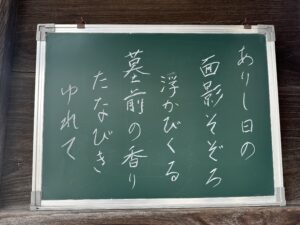 ありし日の
面影そぞろ
浮かびくる
墓前の香り
たなびき
ゆれて